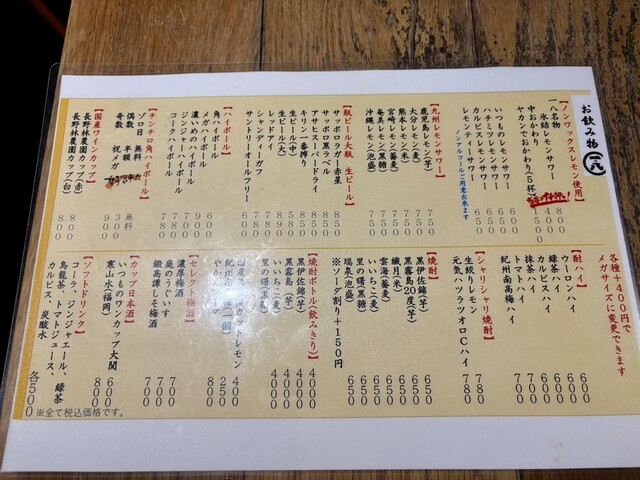 お飲み物
【ノンワックスレモン使用】
一八名物
氷結レモンサワー 800
中おかわり 400
ヤカンでおかわり(5杯)
いつものレモンサワー 600
ハチミツレモンサワー 650
カルピスレモンサワー 650
レモンティーサワー 650
ノンアルコールご用意出来ます
【九州レモンサワー】
鹿児島レモン(芋) 750
大分レモン(麦) 750
熊本レモン(米) 750
宮崎レモン(蕎麦) 750
奄美レモン(黒糖) 750
沖縄レモン(泡盛) 750
【瓶ビール大瓶、生ビール】
サッポロラガー赤星 850
サッポロ黒ラベル 850
アサヒスーパードライ 850
キリン一番搾り 850
生ビール(中)
生ビール(大)
レッドアイ
シャンディーガフ
サントリーオールフリー
【ハイボール】
角ハイボール 600
メガハイボール 900
濃いめハイボール 700
ジンジャーハイボール 650
コークハイボール 780
【チンチロ角ハイボール】
ゾロ目 無料 無料
偶数 半額 300
奇数 祝メガ 900
【国産ワインカップ】
長野林農園カップ(赤) 800
長野林農園カップ(白) 800
各種+400円で
メガサイズに変更できます
【酎ハイ】
ウーロンハイ 600
緑茶ハイ 600
カルピスハイ 600
抹茶ハイ 700
トマトハイ 700
紀州南高梅ハイ 700
【シャリシャリ焼酎】
生絞りレモン 780
元気ハツラツオロCハイ 780
【焼酎】
黒伊佐錦(芋) 650
黒霧島20度(芋) 650
織月(米) 650
雲海(蕎麦) 650
いいちこ(麦) 650
里の曙(黒糖) 650
瑞泉(泡盛) 650
※ソーダ割り+150円
【焼酎ボトル(飲みきり)】
黒伊佐錦(芋) 4000
黒霧島(芋) 4000
いいちこ(麦) 4000
里の曙(黒糖) 4000
カットレモン 400
紀州 250
やかん 800
【セレクト梅酒】
濃厚梅酒 700
庭のうぐいす 700
鍛高譚しそ梅酒 700
【カップ日本酒】
いつものワンカップ大関 600
寒山水(福岡) 800
【ソフトドリンク】
コーラ、ジンジャエール、緑茶
烏龍茶、トマトジュース、
カルピス、炭酸水
各500
※全て税込価格です。